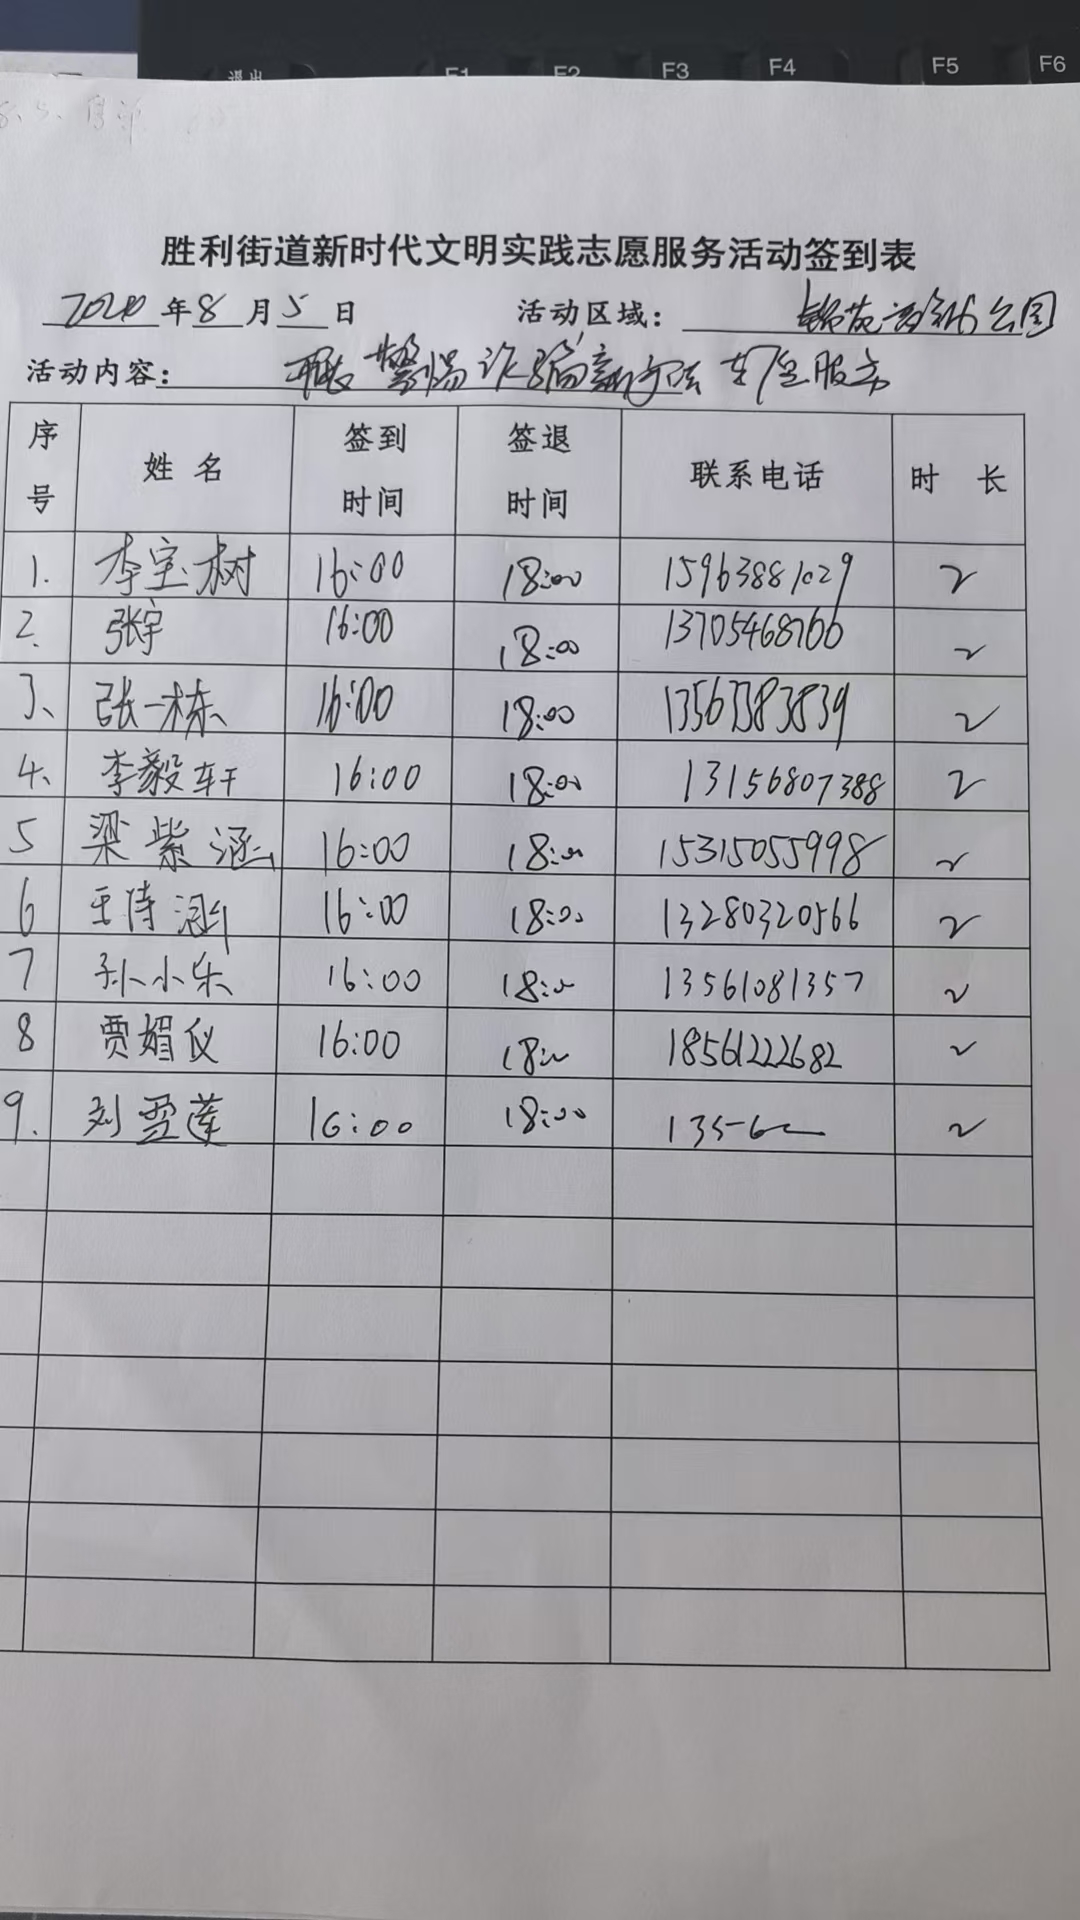 退出 F1 F2 F3 F4 F5 F6
胜利街道新时代文明实践志愿服务活动签到表
年8月5日 活动区域： 公园
活动内容： 警惕诈骗新方法 志愿服务
序号 姓名 签到时间 签退时间 联系电话 时长
1. 李宝树 16:00 18:00 15963881029 2
2. 张宇 16:00 18:00 13705468766 2
3、 张一栋 16:00 18:00 2
4、 李毅轩 16:00 18:00 13156807388 2
5 梁紫涵 16:00 18:00 15315055998 2
6 王诗涵 16:00 18:00 13280320566 2
7 孙小乐 16:00 18:00 13561081357 2
8 贾媚仪 16:00 18:00 18561222682 2
9. 刘雪莲 16:00 18:00 2